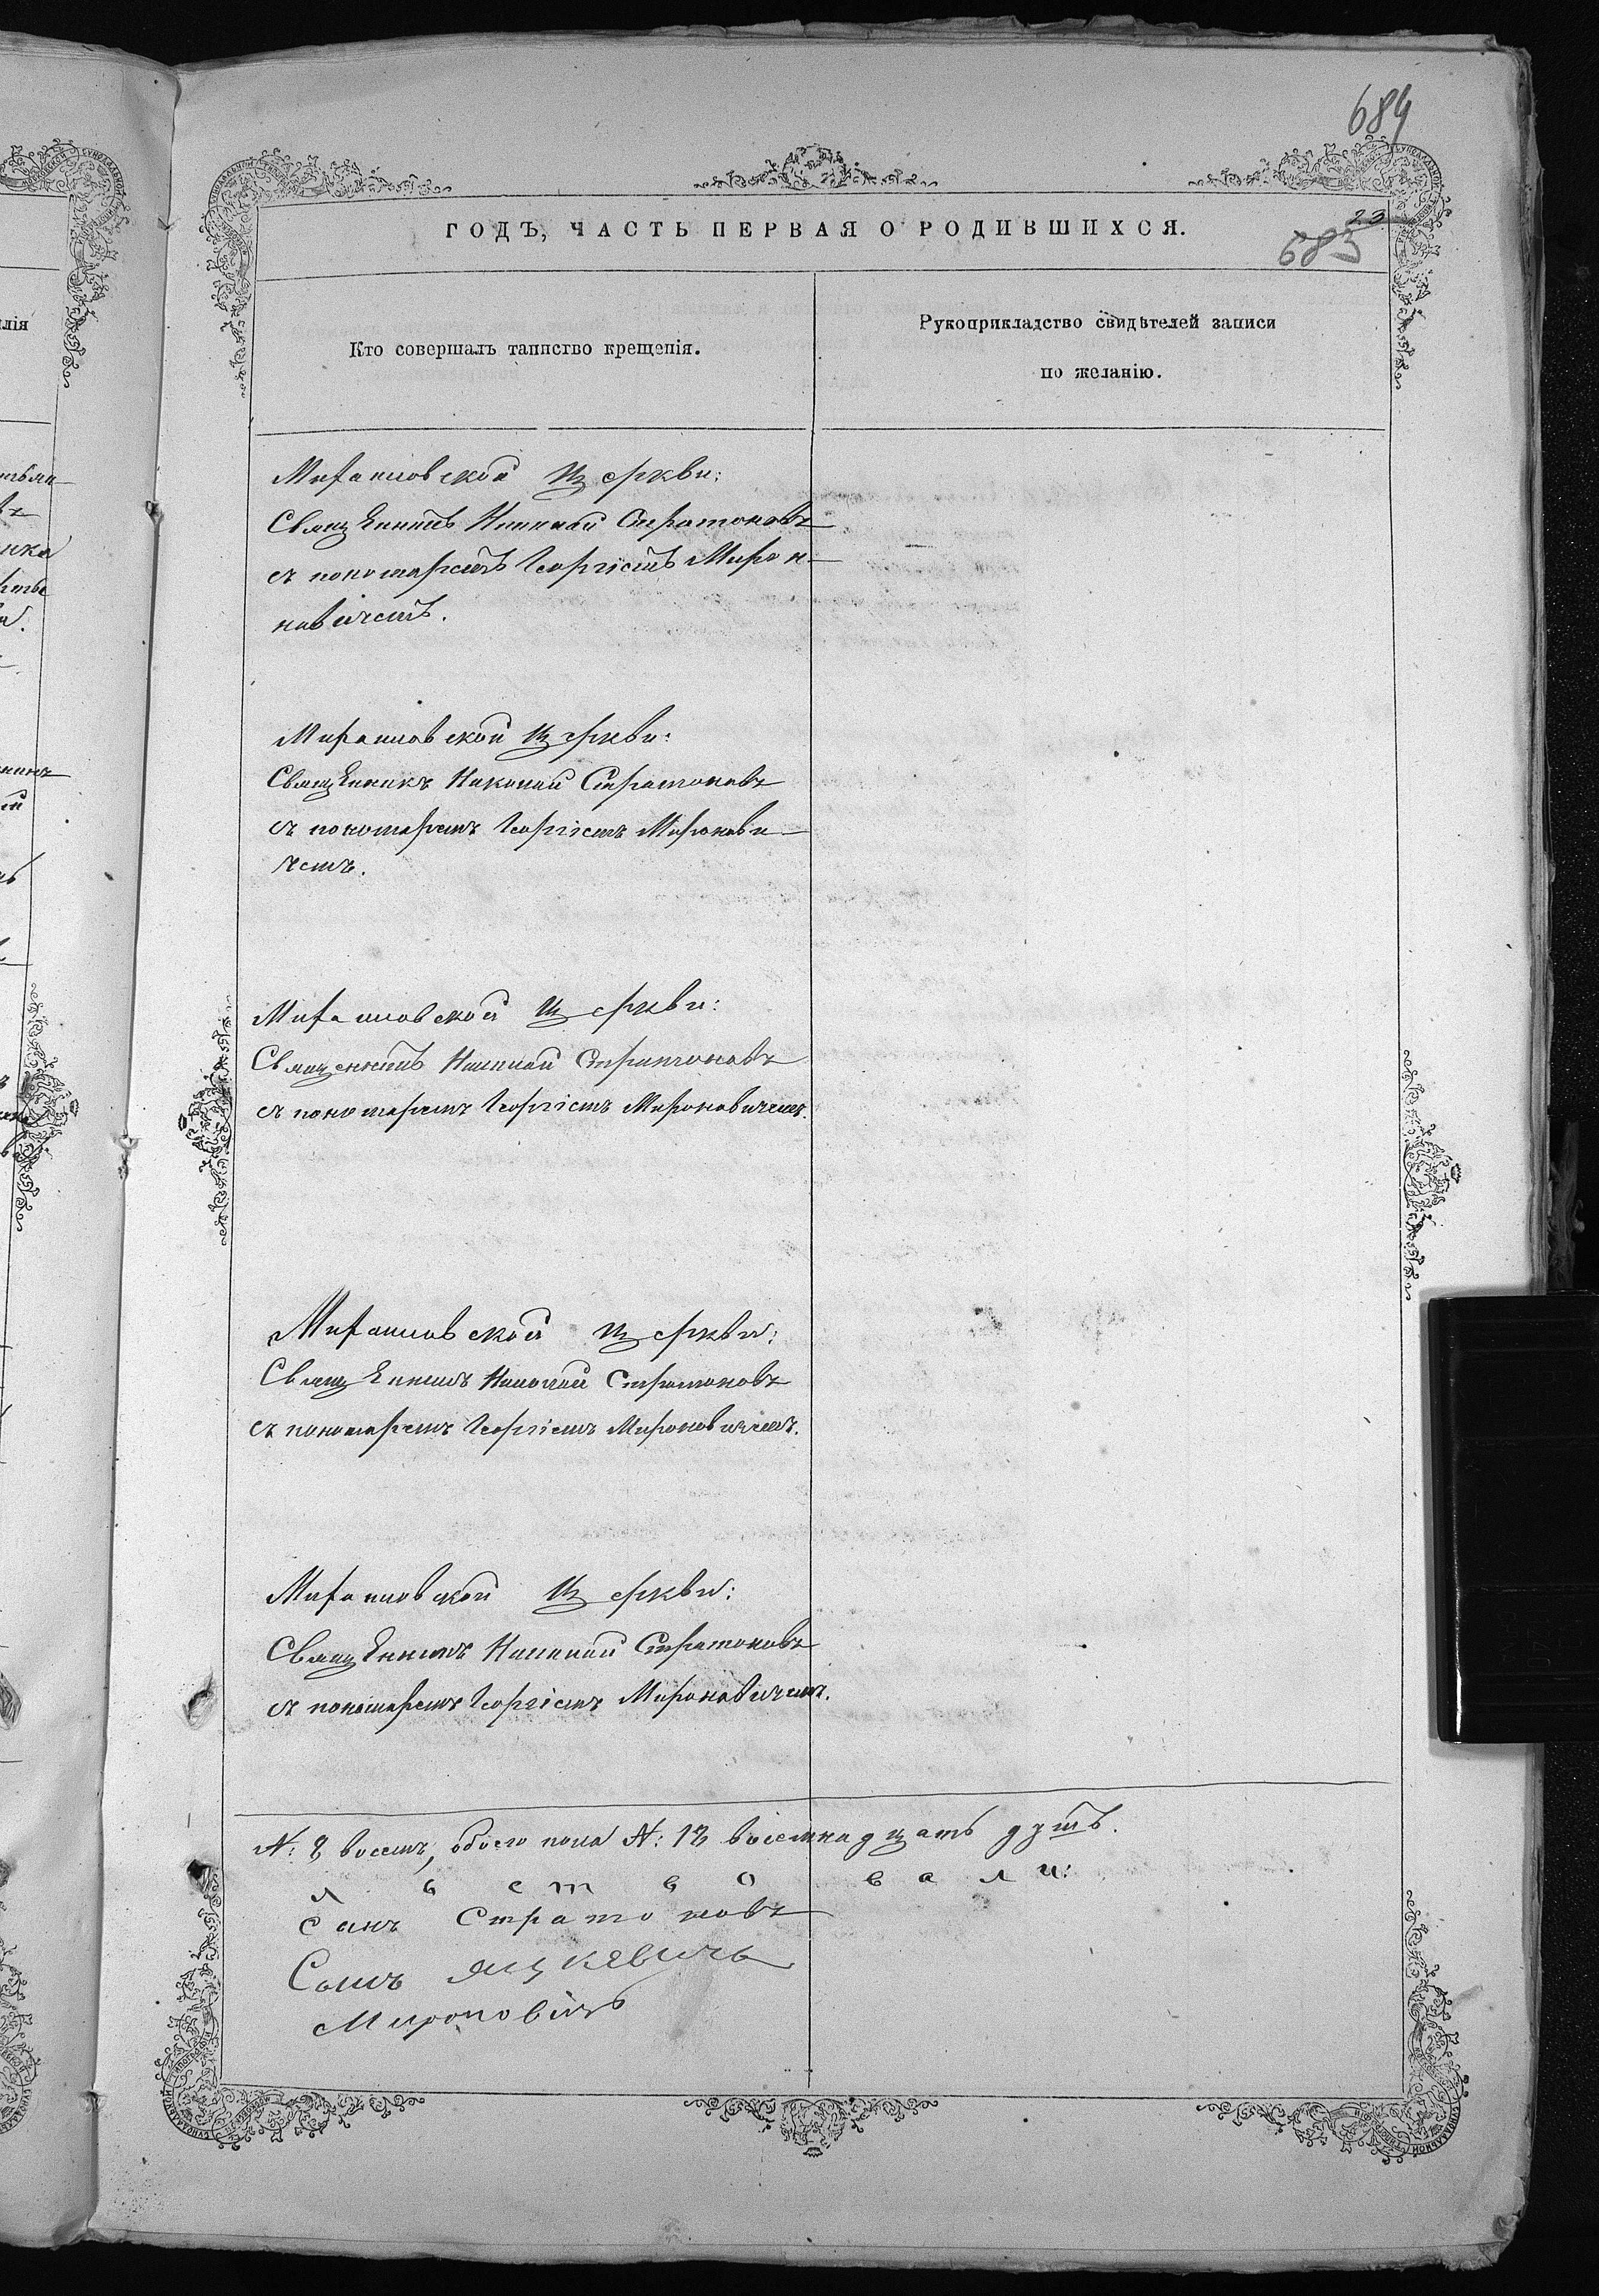 684
ГОДЪ, ЧАСТЬ ПЕРВАЯ О РОДИВШИХСЯ.
23
683
Кто совершалъ таинство крещенія.
Рукоприкладство свидѣтелей записи
по желанію.
церкви:
Священникъ Николай Стратоновъ
съ пономаремъ Георгіемъ Мирон-
новичемъ.
церкви:
Священникъ Николай Стратоновъ
съ пономаремъ Георгіемъ Миронови-
чемъ.
церкви:
Священникъ Николай Стратоновъ
съ пономаремъ Георгіемъ Мироновичемъ.
церкви:
Священникъ Николай Стратоновъ
съ пономаремъ Георгіемъ Мироновичемъ.
церкви:
Священникъ Николай Стратоновъ
съ пономаремъ Георгіемъ Мироновичемъ.
N: 8 восемь, обоего пола N: 18 восемнадцать душъ.
л ь с т в о в а л и:
Стратоновъ
Яцкевичъ
Мироновичъ